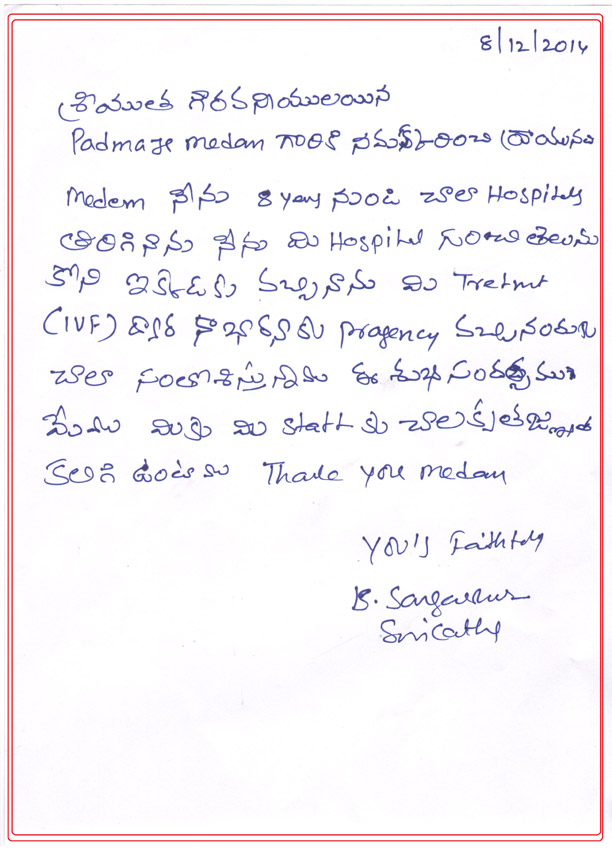 8/12/2014
శ్రీయుత గౌరవనీయులయిన
Padmaje medam గారికి నమస్కరించి వ్రాయునది
Medem నేను 8 years నుండి చాలా Hospitels
తిరిగినాను నేను మి Hospitel గురించి తెలుసు
కొని ఇక్కడకు వచ్చినాను మి Tretmt
(IVF) ద్వారా నా భార్యకు pragency వచ్చినందుకు
చాలా సంతోశిస్తున్నాము ఈ శుభ సందర్భముగా
మేము మికు మి staff కు చాల కృతజ్ఞత
కలిగి ఉంటాము Thank you medam
you's Faithfuly
B.